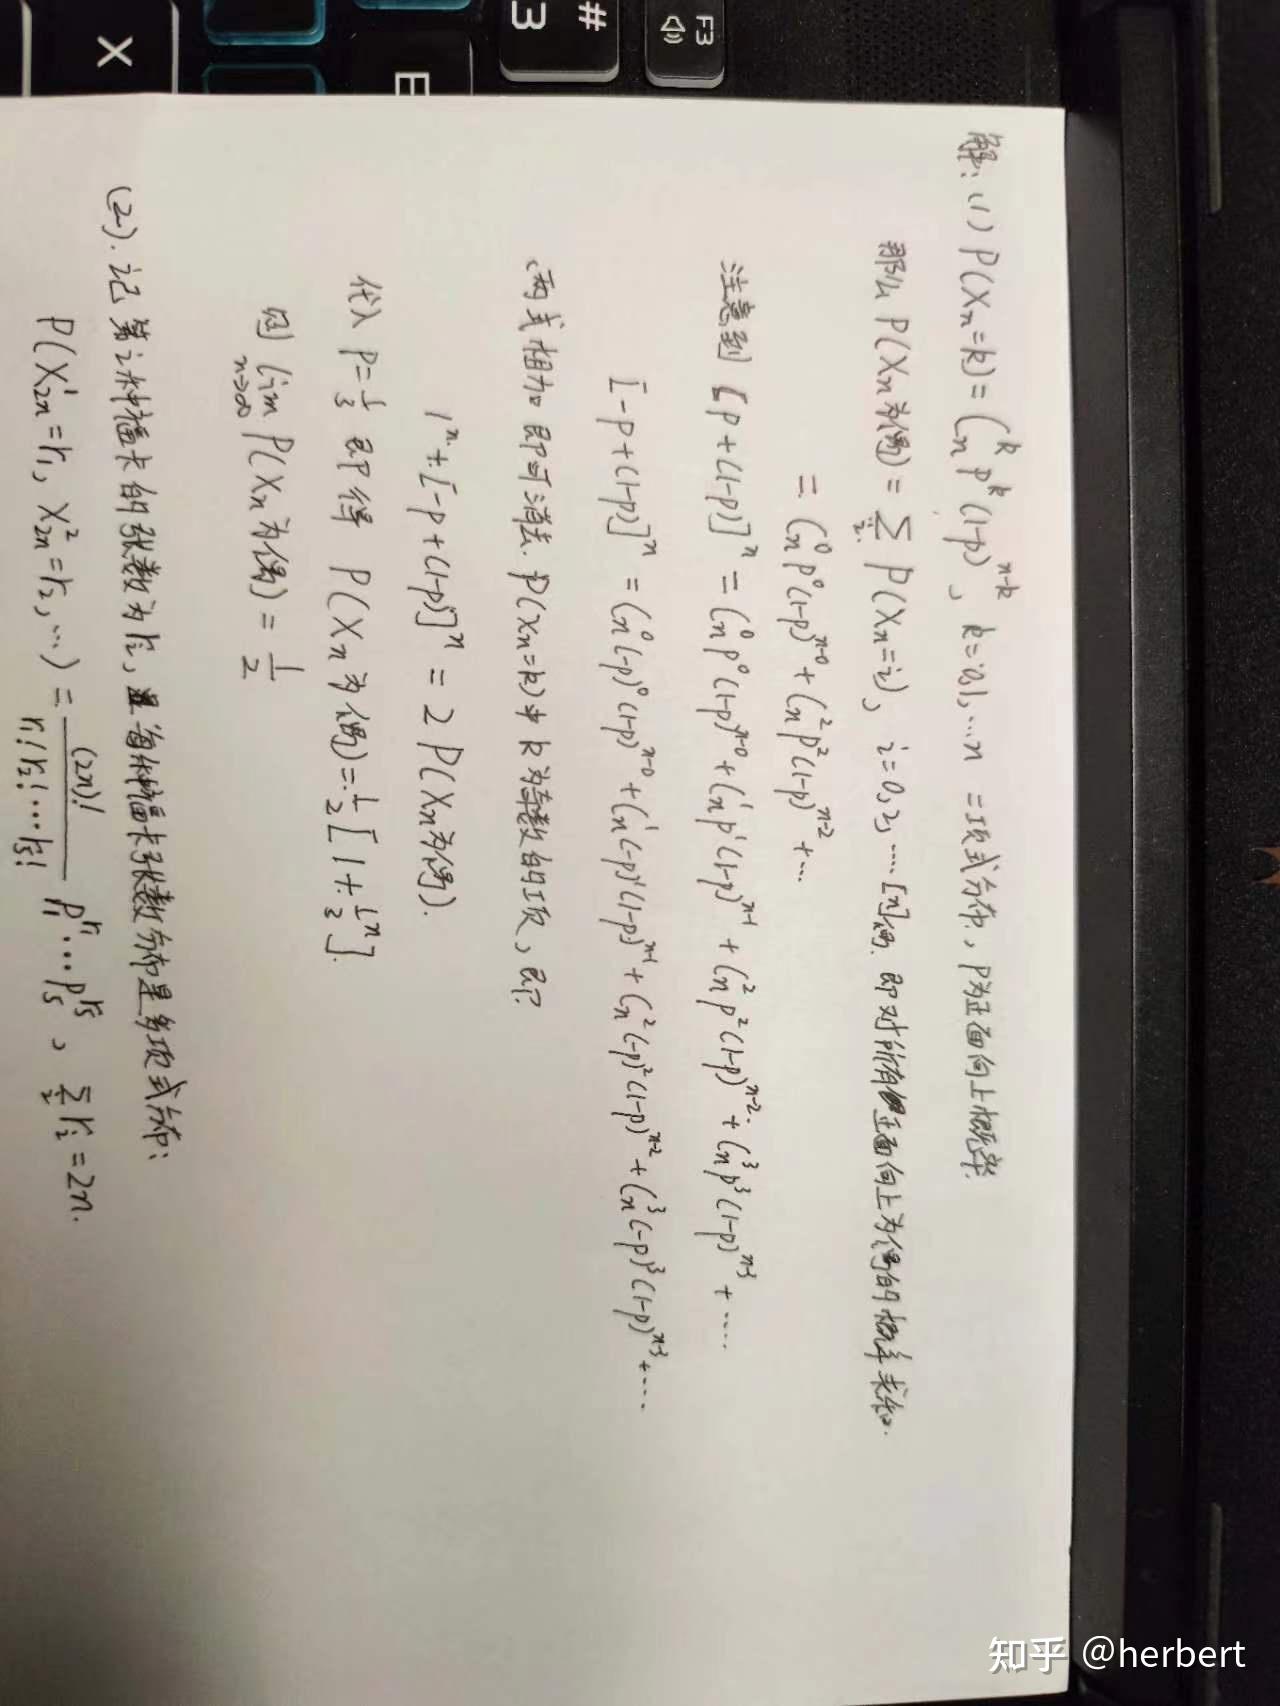 解：(1) P(Xn=k)=C_n^k p^k (1-p)^{n-k}, k=0,1,…n 二项式分布, P为正面向上概率.
那么 P(Xn为偶)=∑_i P(Xn=i), i=0,2,…[n]偶. 即对所有正面向上为偶的概率求和.
= C_n^0 p^0 (1-p)^{n-0} + C_n^2 p^2 (1-p)^{n-2} + …
注意到 [p+(1-p)]^n = C_n^0 p^0 (1-p)^{n-0} + C_n^1 p^1 (1-p)^{n-1} + C_n^2 p^2 (1-p)^{n-2} + C_n^3 p^3 (1-p)^{n-3} + ……
[-p+(1-p)]^n = C_n^0 (-p)^0 (1-p)^{n-0} + C_n^1 (-p)^1 (1-p)^{n-1} + C_n^2 (-p)^2 (1-p)^{n-2} + C_n^3 (-p)^3 (1-p)^{n-3} + ……
两式相加 即可消去 P(Xn=k)中k为奇数的项, 即
1^n + [-p+(1-p)]^n = 2P(Xn为偶).
代入 P=1/3 即得 P(Xn为偶)=1/2[1+1/3^n].
则 lim_{n→∞} P(Xn为偶)=1/2
(2). 记第i种福卡的张数为r_i, 每种福卡张数分布是多项式分布:
P(X_{2n}^1=r_1, X_{2n}^2=r_2, …) = (2n)!/(r_1! r_2! … r_5!) p_1^{r_1} … p_5^{r_5}, ∑_i r_i = 2n.
F3
#
3
E
X
知乎 @herbert